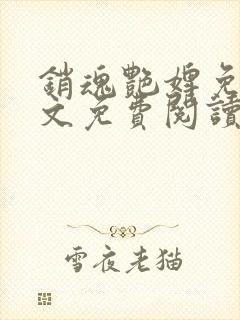 銷魂艷婢免
文免費閱讀
雪夜老猫